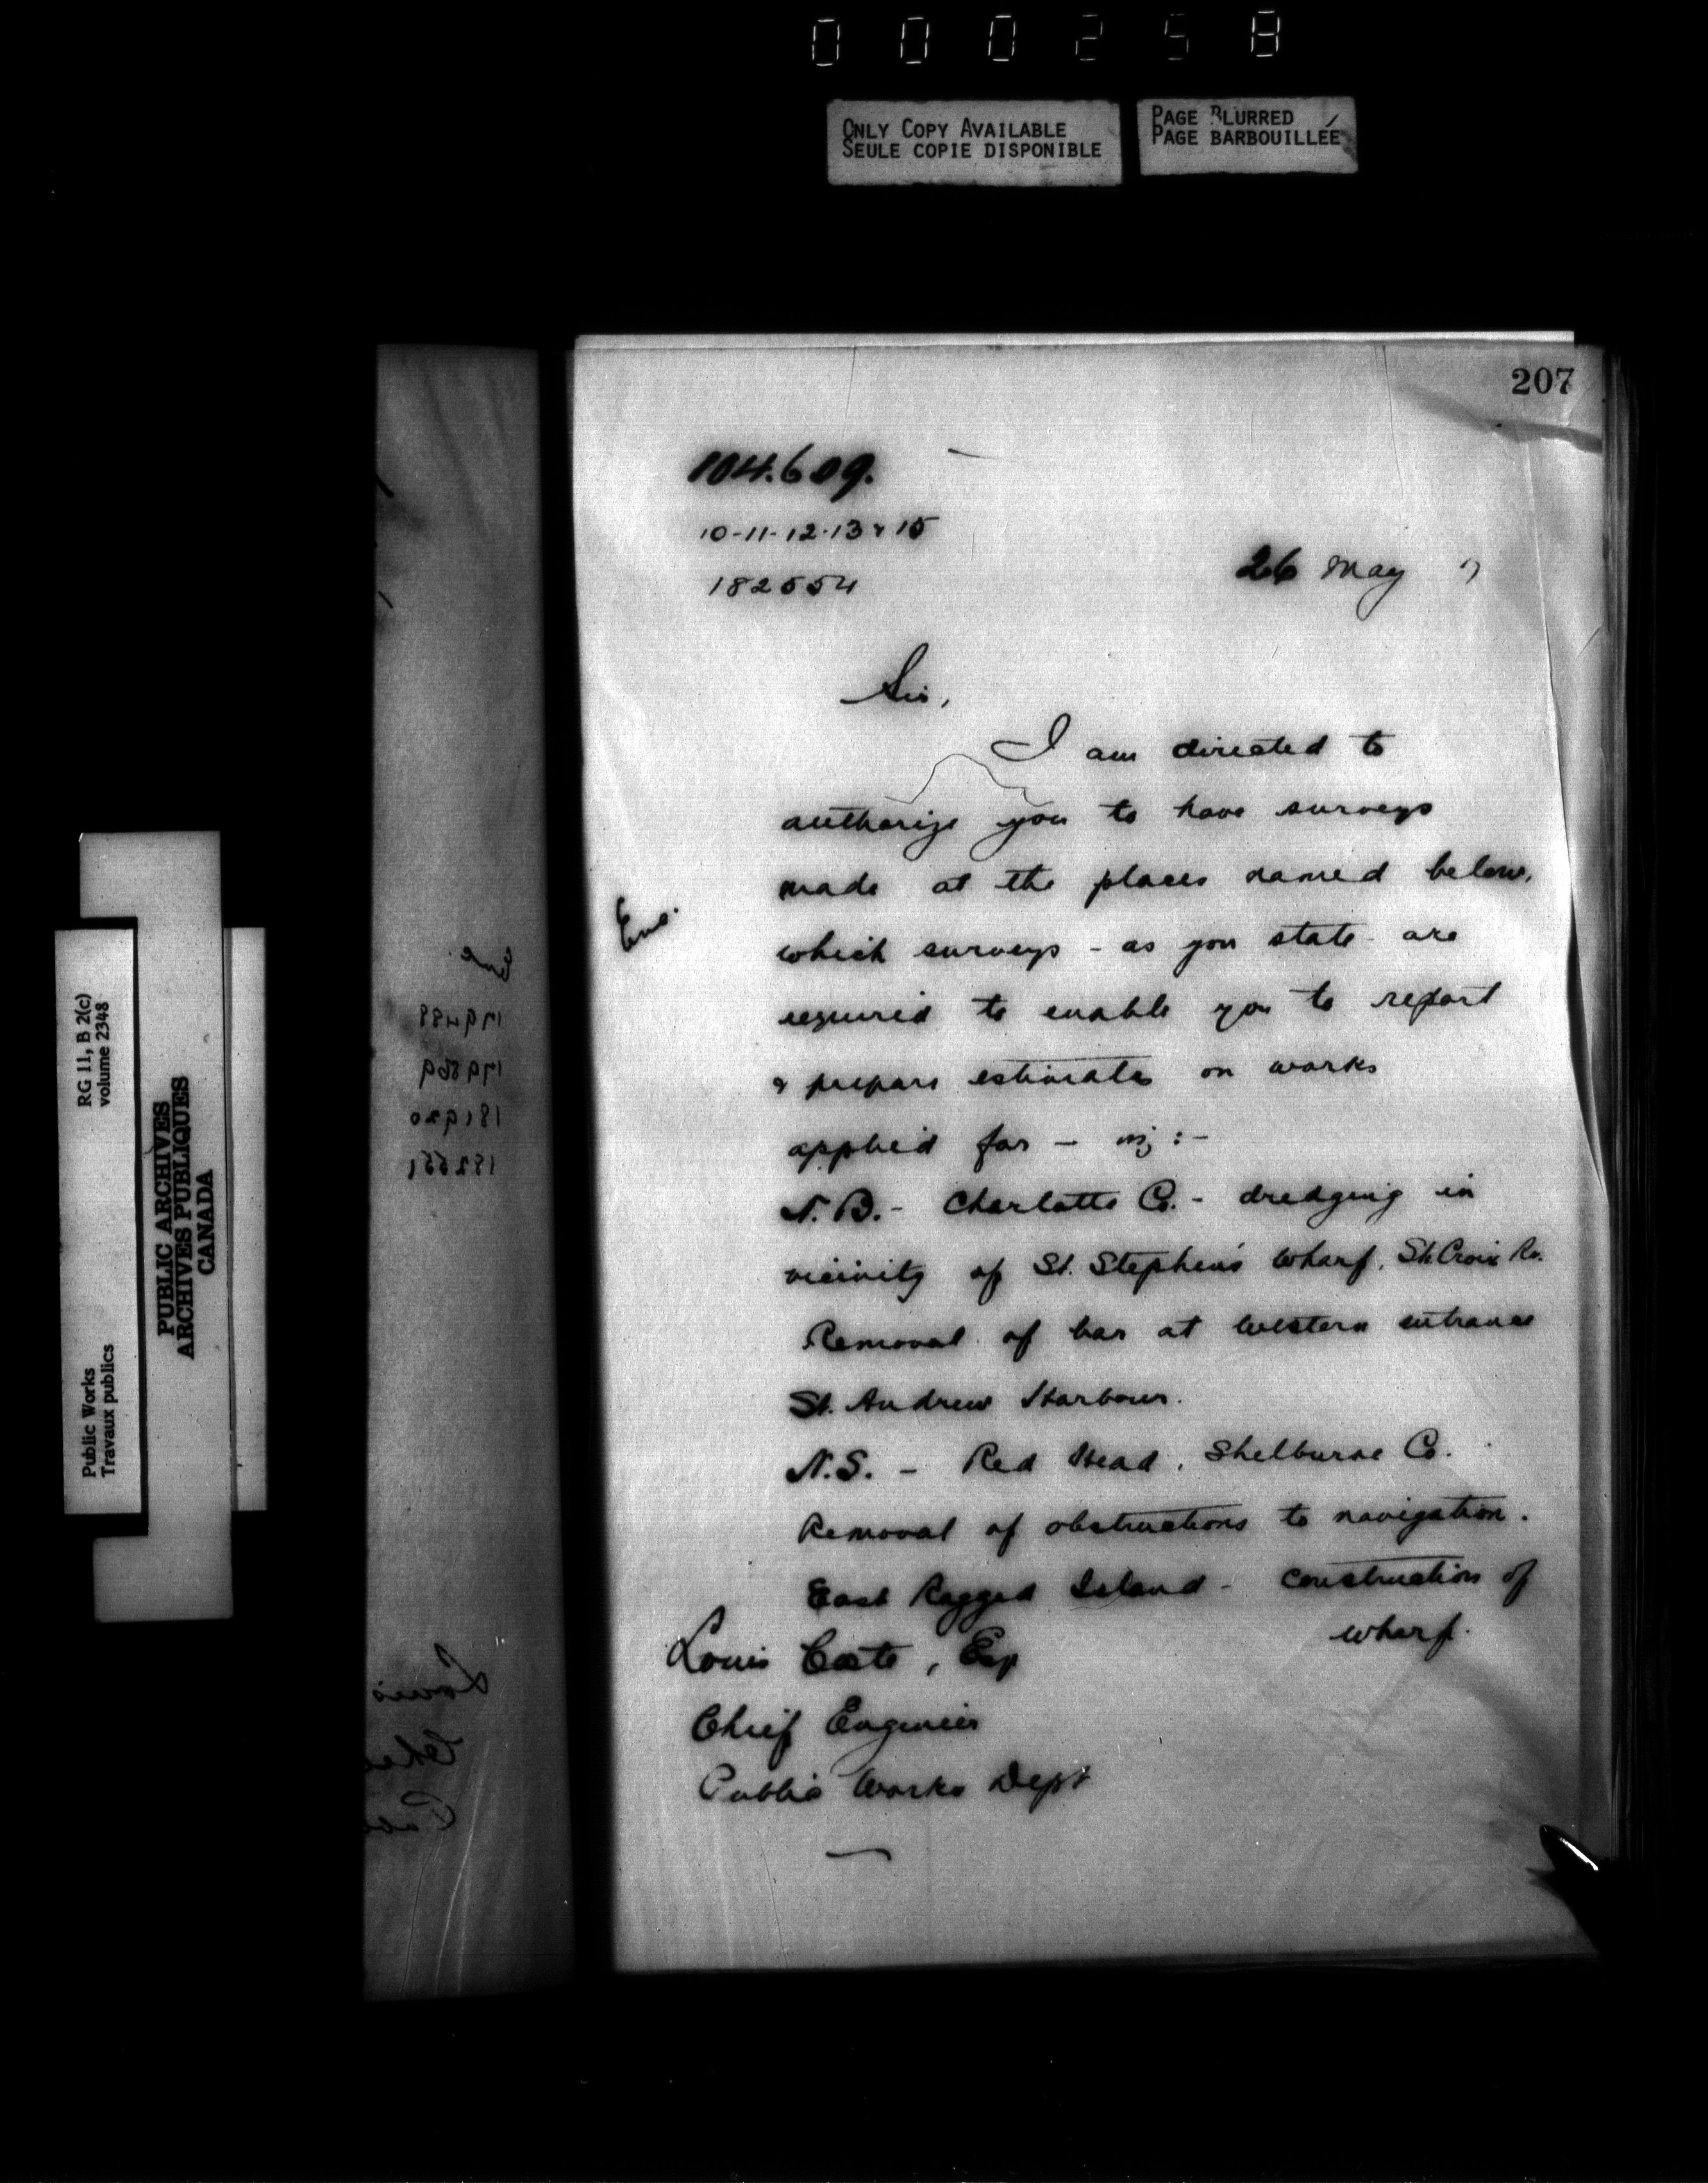 000258
ONLY COPY AVAILABLE
SEULE COPIE DISPONIBLE
PAGE BLURRED
PAGE BARBOUILLÉE
207
104.609.
10-11-12-13 & 15
182554
26 May 7
Sir,
I am directed to
authorize you to have surveys
made at the places named below,
which surveys - as you state - are
required to enable you to report
& prepare estimates on works
applied for - viz :-
N.B. - Charlotte Co. - dredging in
vicinity of St. Stephen's Wharf, St. Croix Rv.
Removal of bar at Western entrance
St. Andrew Harbour.
N.S. - Red Head, Shelburne Co.
Removal of obstructions to navigation.
East Ragged Island - construction of
wharf.
Louis Coste, Esq
Chief Engineer
Public Works Dept
RG 11, B 2(c)
volume 2348
Public Works
Travaux publics
PUBLIC ARCHIVES
ARCHIVES PUBLIQUES
CANADA
179488
179569
181920
182551
Louis